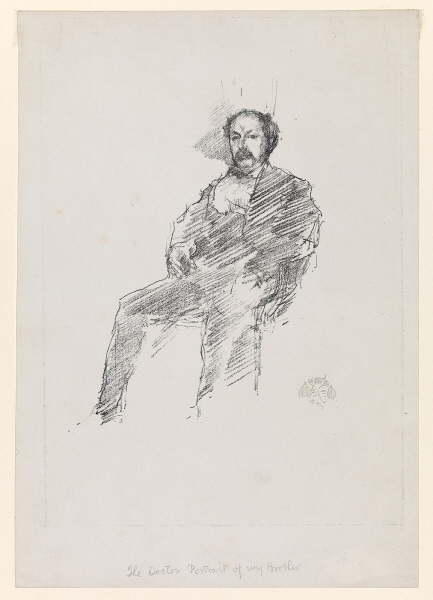 The Doctor Portrait of my Brother